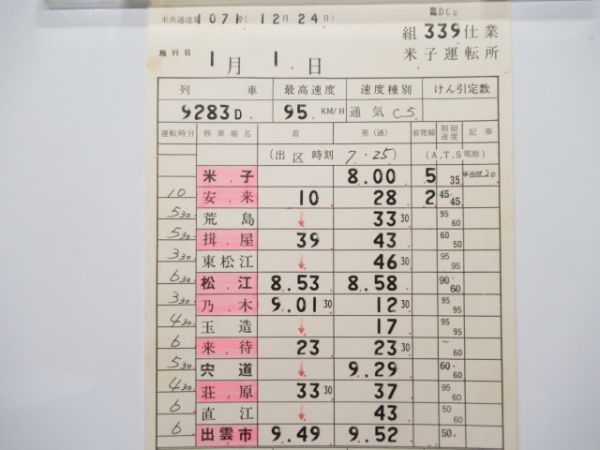 米共通達第1071号(12月24日)
組339仕業
施行日 1月1日 米子運転所
列車 最高速度 速度種別 けん引定数
9283D 95 KM/H 通気C5
運転時分 停車場名 着 発(通) 着発線 制限速度 記事
(出区時刻 7.25) (A,T,S電源)
米子 8.00 5 35
10 安来 10 28 2 45 45
5 30 荒島 ↓ 33 30 95 60
5 30 揖屋 39 43 60 50
3 30 東松江 ↓ 46 30 95 95
6 30 松江 8.53 8.58 90 60
3 30 乃木 9.01 30 12 30 95 95
4 30 玉造 ↓ 17 95 95
6 来待 23 23 30 ~ 60
5 30 宍道 ↓ 9.29 60 60
4 30 荘原 33 30 37 95 95
6 直江 ↓ 43 50 60
6 出雲市 9.49 9.52 50